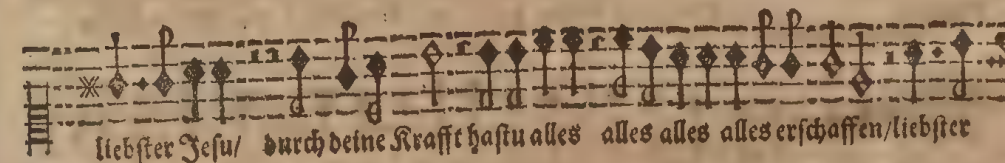 liebster Jesu/ durch deine Krafft hastu alles alles alles alles erschaffen/liebster